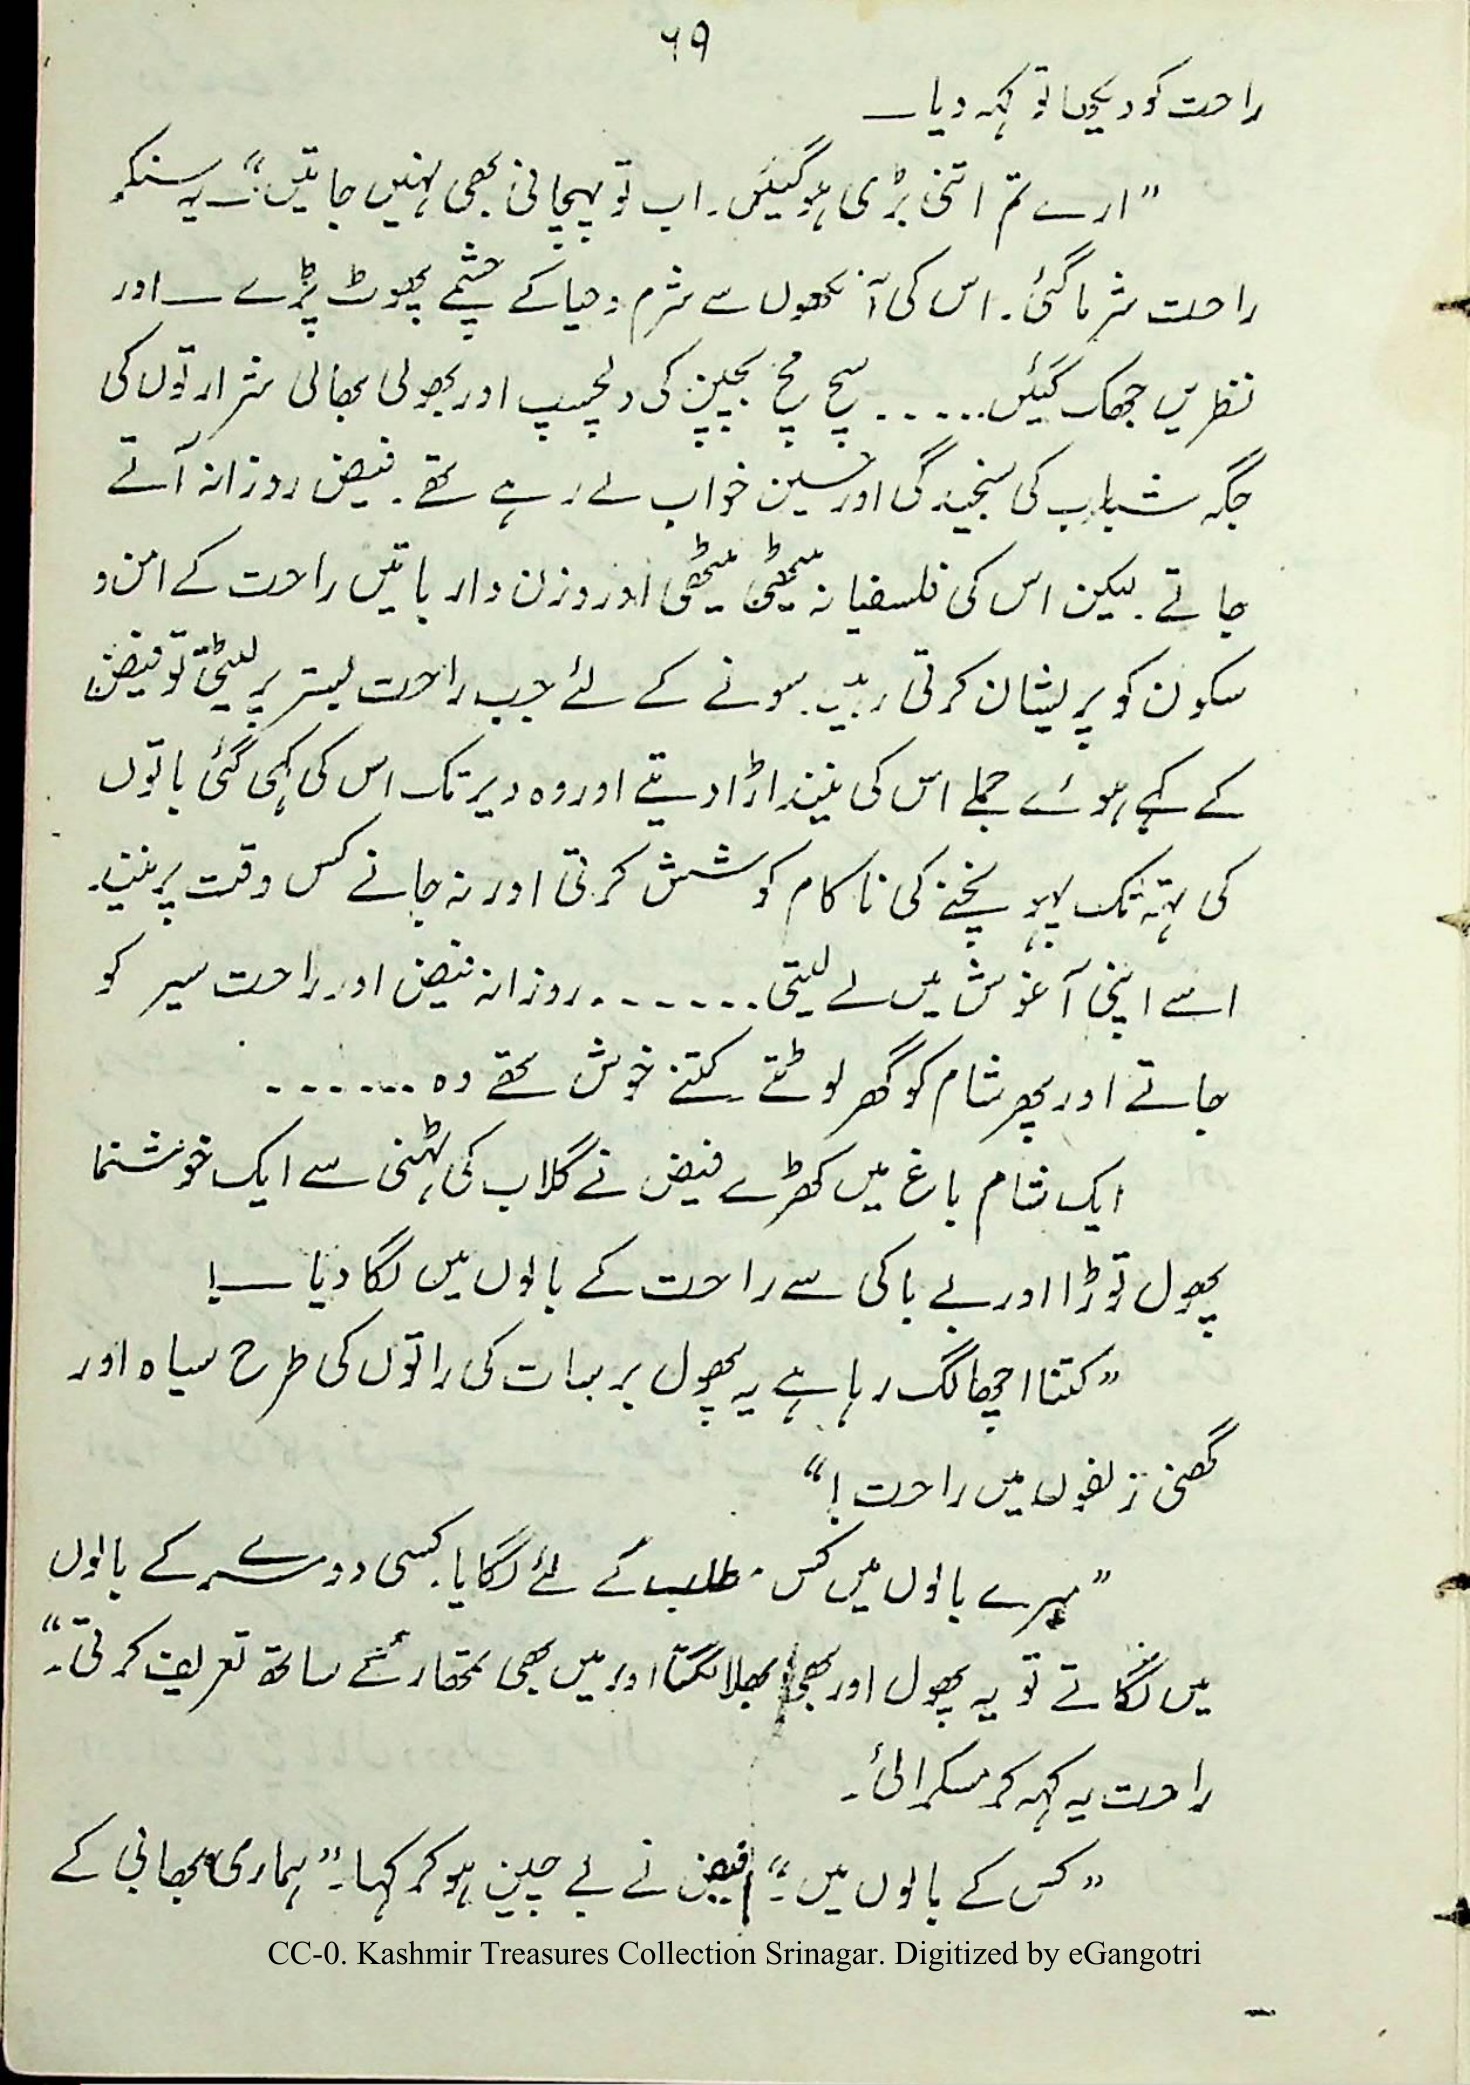 ۶۹
راحت کو دیکھا تو کہہ دیا ــ
”ارے تم اتنی بڑی ہوگیئں۔ اب تو پہچانی بھی نہیں جاتیں“ــ یہ سنکر
راحت شرما گئی۔ اس کی آنکھوں سے شرم و حیا کے چشمے پھوٹ پڑے ــ اور
نظریں جھک گیئں۔۔۔۔۔۔ سچ مچ بچپن کی دلچسپ اور بھولی بھالی شرارتوں کی
جگہ شباب کی سنجیدگی اور حسین خواب لے رہے تھے۔ فیض روزانہ آتے
جاتے۔ لیکن اس کی فلسفیانہ میٹھی میٹھی اور وزن دار باتیں راحت کے امن و
سکون کو پریشان کرتی رہیں۔ سونے کے لئے جب راحت بستر پر لیٹتی تو فیض
کے کہے ہوئے جملے اس کی نیند اڑا دیتے اور وہ دیر تک اس کی کہی گئی باتوں
کی تہہ تک پہونچنے کی ناکام کوشش کرتی اور نہ جانے کس وقت پر نیند
اسے اپنی آغوش میں لے لیتی۔۔۔۔۔۔۔ روزانہ فیض اور راحت سیر کو
جاتے اور پھر شام کو گھر لوٹتے۔ کتنے خوش تھے وہ۔۔۔۔۔۔۔
ایک شام باغ میں کھڑے فیض نے گلاب کی ٹہنی سے ایک خوشنما
پھول توڑا اور بے باکی سے راحت کے بالوں میں لگا دیا ــ!
”کتنا اچھا لگ رہا ہے یہ پھول برسات کی راتوں کی طرح سیاہ اور
گھنی زلفوں میں راحت!“
”میرے بالوں میں کس مطلب کے لئے لگایا۔ کسی دوسرے کے بالوں
میں لگاتے تو یہ پھول اور بھی بھلا لگتا اور میں بھی تمھارے ساتھ تعریف کرتی۔“
راحت یہ کہہ کر مسکرائی۔
”کس کے بالوں میں۔“ فیض نے بے چین ہو کر کہا۔ ”ہماری بھابی کے
CC-0. Kashmir Treasures Collection Srinagar. Digitized by eGangotri